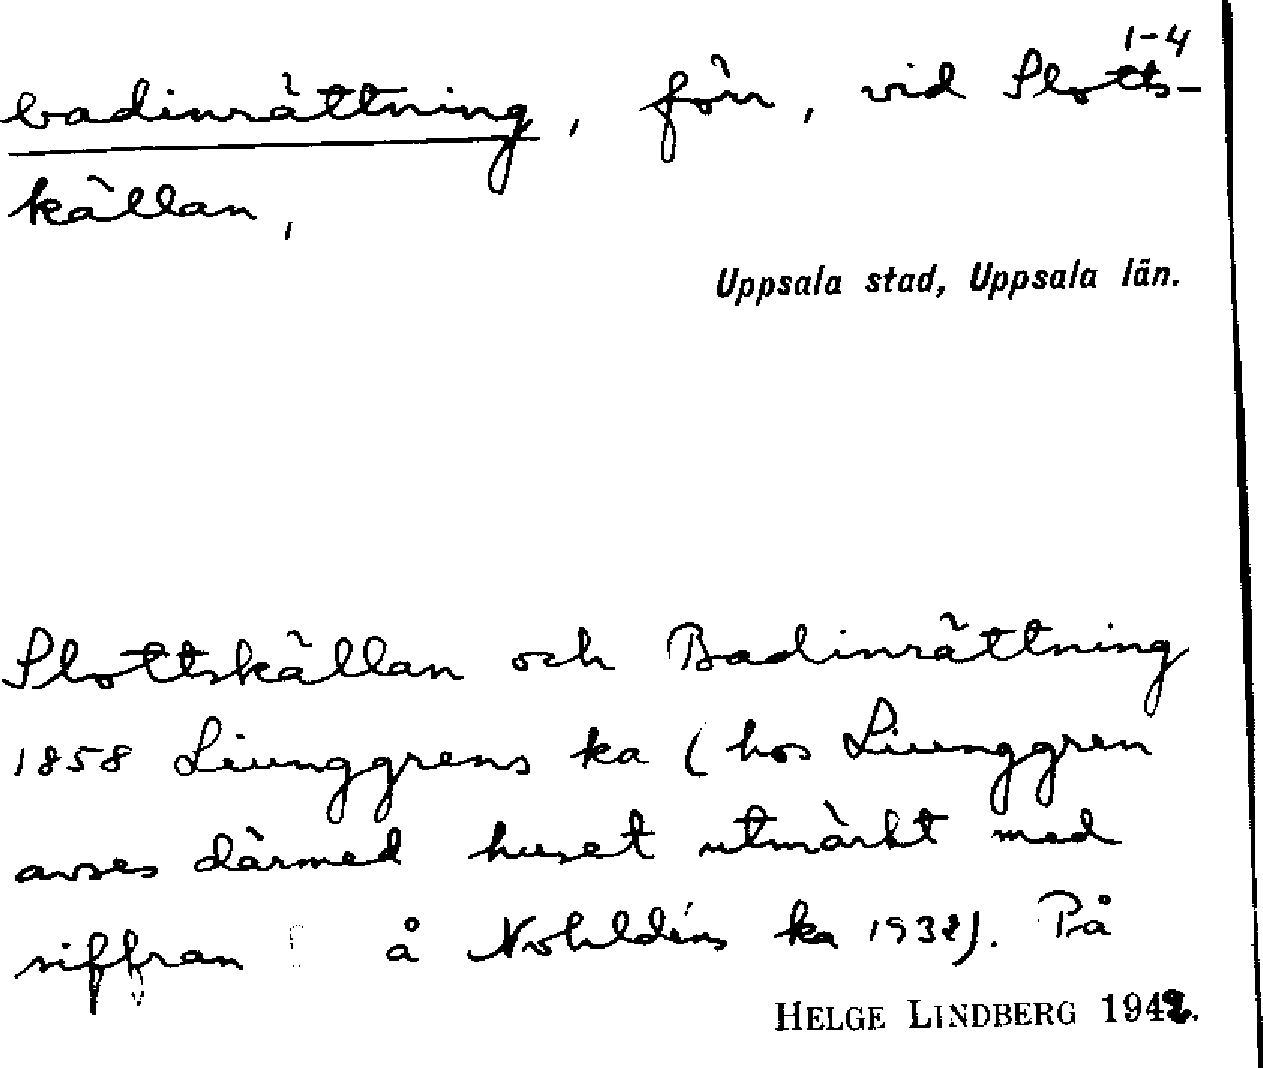 1-4
badinrättning, förr, vid Slotts-
källan,
Uppsala stad, Uppsala län.
Slottskällan och Badinrättning
1858 Liunggrens ka (hos Liunggren
avses därmed huset utmärkt med
siffran å Nohldéns ka 1932). På
HELGE LINDBERG 1942.